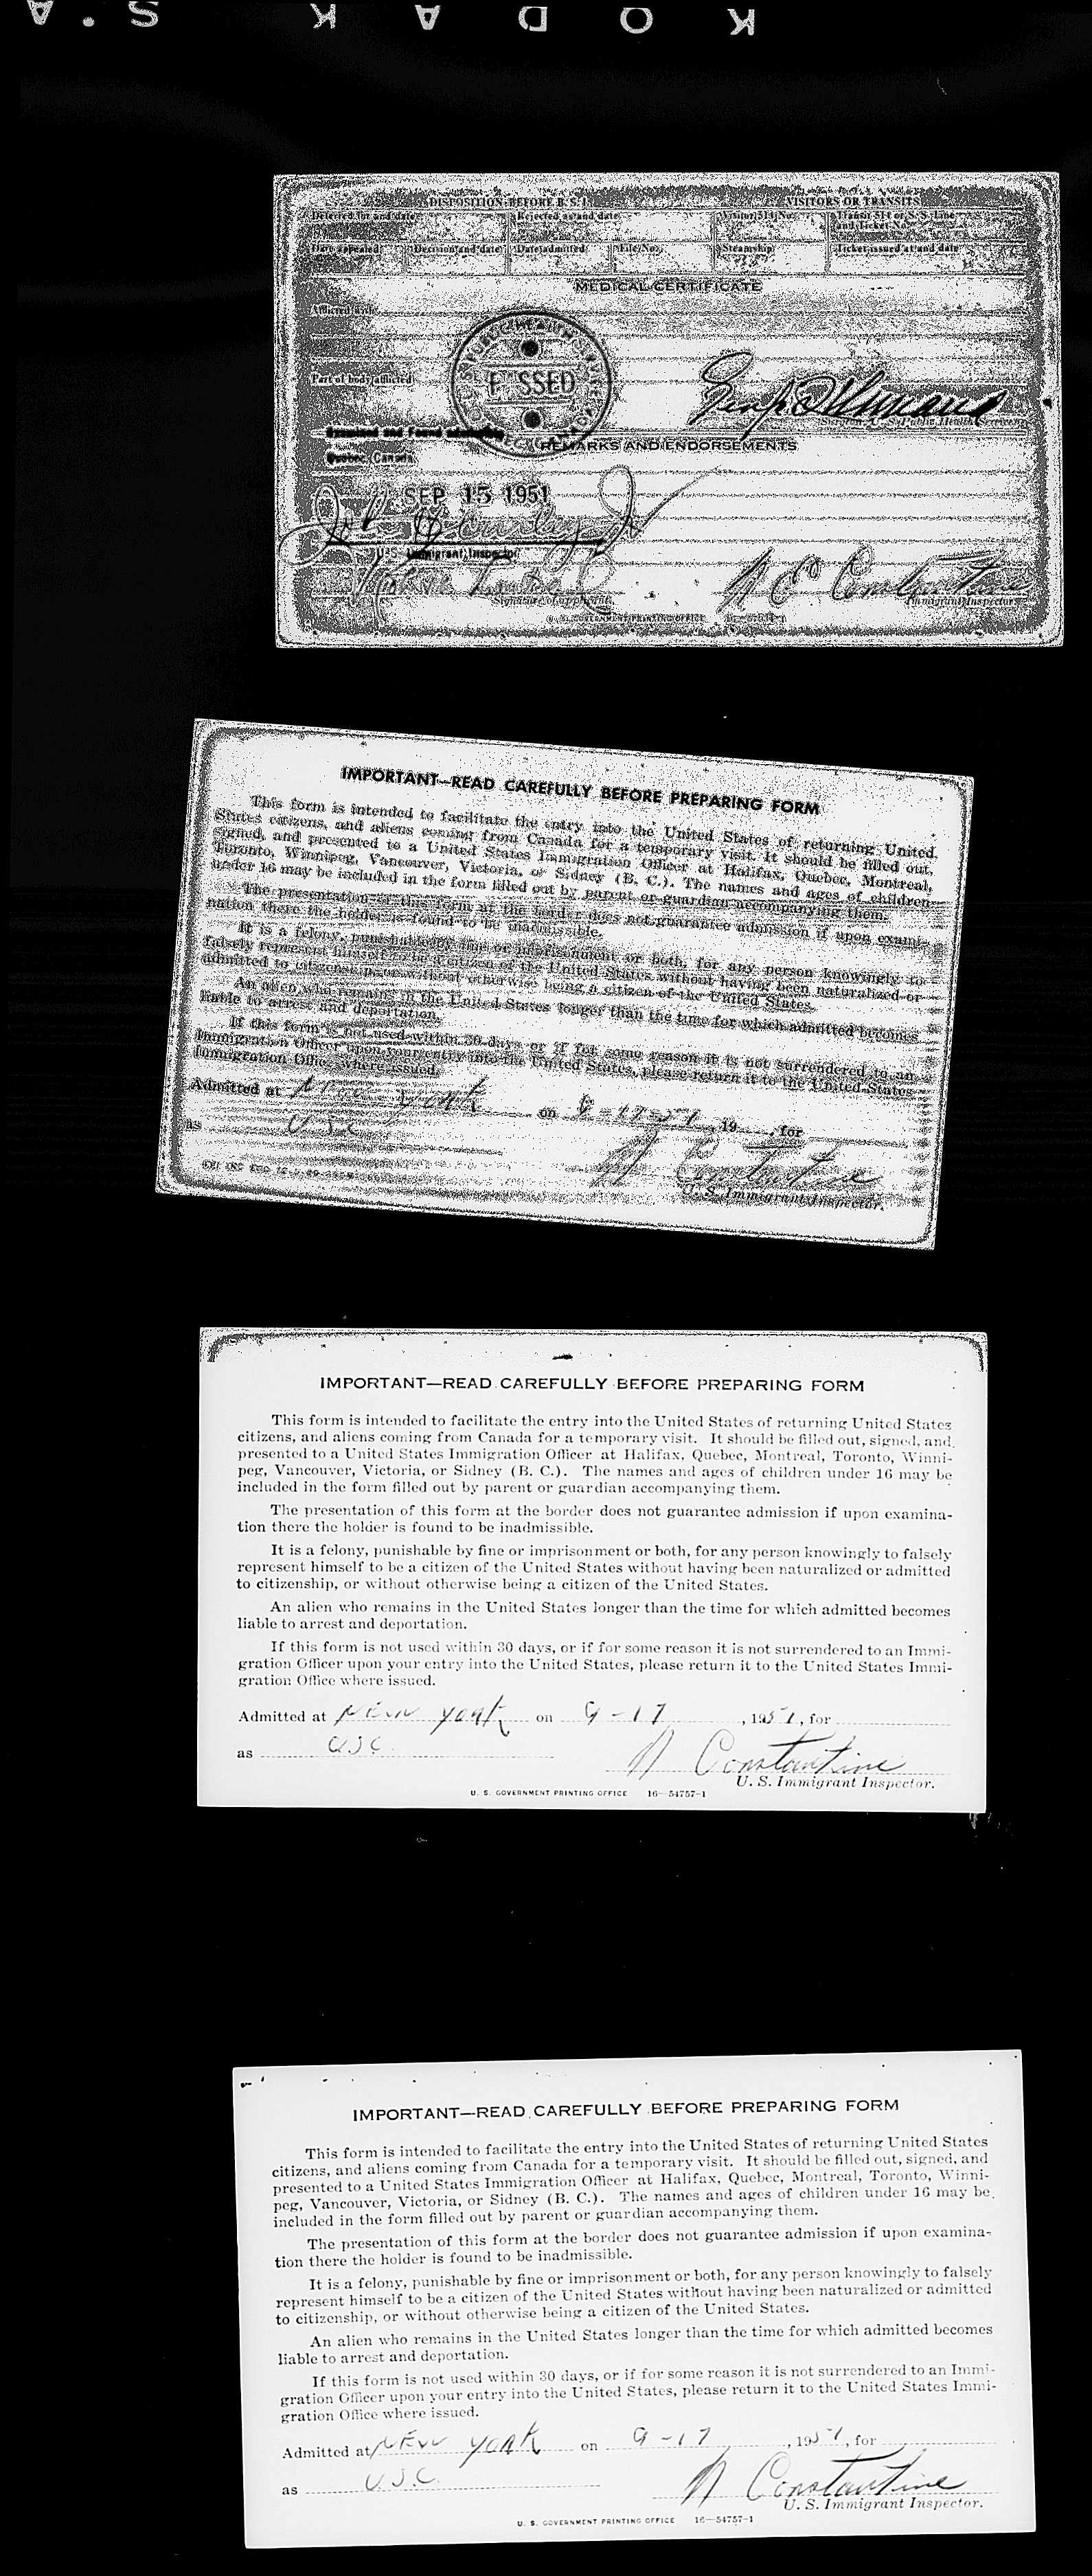 KODAK S.A
DISPOSITION BEFORE B. S. I. VISITORS OR TRANSITS
Deferred for and date Rejected as and date Visitor 514 No. Transit 514 or S. S. Line and Ticket No.
Date appealed Decision and date Date admitted File No. Steamship Ticket issued at and date
MEDICAL CERTIFICATE
Afflicted with
Part of body afflicted
U. S. PUBLIC HEALTH SERVICE
P SSED
Surgeon, U. S. Public Health Service
Examined and Found
REMARKS AND ENDORSEMENTS
Quebec, Canada
SEP 15 1951
U. S. Immigrant Inspector
N C Constantine
Signature of applicant Immigrant Inspector
U. S. GOVERNMENT PRINTING OFFICE
IMPORTANT—READ CAREFULLY BEFORE PREPARING FORM
This form is intended to facilitate the entry into the United States of returning United
States citizens, and aliens coming from Canada for a temporary visit. It should be filled out,
signed, and presented to a United States Immigration Officer at Halifax, Quebec, Montreal,
Toronto, Winnipeg, Vancouver, Victoria, or Sidney (B. C.). The names and ages of children
under 16 may be included in the form filled out by parent or guardian accompanying them.
The presentation of this form at the border does not guarantee admission if upon exami-
nation there the holder is found to be inadmissible.
It is a felony, punishable by fine or imprisonment or both, for any person knowingly to
falsely represent himself to be a citizen of the United States without having been naturalized or
admitted to citizenship or without otherwise being a citizen of the United States.
An alien who remains in the United States longer than the time for which admitted becomes
liable to arrest and deportation.
If this form is not used within 30 days or if for some reason it is not surrendered to an
Immigration Officer upon your entry into the United States, please return it to the United States
Immigration Office where issued.
Admitted at New York on 9-17-51, 19 , for
as USC
N Constantine
U. S. Immigrant Inspector.
IMPORTANT—READ CAREFULLY BEFORE PREPARING FORM
This form is intended to facilitate the entry into the United States of returning United States
citizens, and aliens coming from Canada for a temporary visit. It should be filled out, signed, and
presented to a United States Immigration Officer at Halifax, Quebec, Montreal, Toronto, Winni-
peg, Vancouver, Victoria, or Sidney (B. C.). The names and ages of children under 16 may be
included in the form filled out by parent or guardian accompanying them.
The presentation of this form at the border does not guarantee admission if upon examina-
tion there the holder is found to be inadmissible.
It is a felony, punishable by fine or imprisonment or both, for any person knowingly to falsely
represent himself to be a citizen of the United States without having been naturalized or admitted
to citizenship, or without otherwise being a citizen of the United States.
An alien who remains in the United States longer than the time for which admitted becomes
liable to arrest and deportation.
If this form is not used within 30 days, or if for some reason it is not surrendered to an Immi-
gration Officer upon your entry into the United States, please return it to the United States Immi-
gration Office where issued.
Admitted at NEW YORK on 9-17, 1951, for
as USC
N Constantine
U. S. Immigrant Inspector.
U. S. GOVERNMENT PRINTING OFFICE 16—54757-1
IMPORTANT—READ CAREFULLY BEFORE PREPARING FORM
This form is intended to facilitate the entry into the United States of returning United States
citizens, and aliens coming from Canada for a temporary visit. It should be filled out, signed, and
presented to a United States Immigration Officer at Halifax, Quebec, Montreal, Toronto, Winni-
peg, Vancouver, Victoria, or Sidney (B. C.). The names and ages of children under 16 may be
included in the form filled out by parent or guardian accompanying them.
The presentation of this form at the border does not guarantee admission if upon examina-
tion there the holder is found to be inadmissible.
It is a felony, punishable by fine or imprisonment or both, for any person knowingly to falsely
represent himself to be a citizen of the United States without having been naturalized or admitted
to citizenship, or without otherwise being a citizen of the United States.
An alien who remains in the United States longer than the time for which admitted becomes
liable to arrest and deportation.
If this form is not used within 30 days, or if for some reason it is not surrendered to an Immi-
gration Officer upon your entry into the United States, please return it to the United States Immi-
gration Office where issued.
Admitted at NEW YORK on 9-17, 1951, for
as U.S.C.
N Constantine
U. S. Immigrant Inspector.
U. S. GOVERNMENT PRINTING OFFICE 16—54757-1